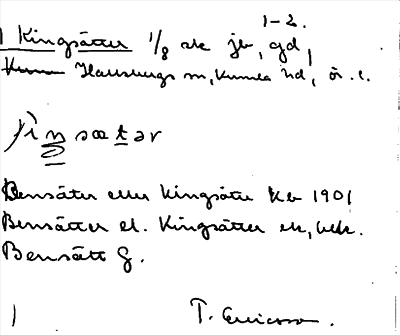 1-2.
1 Kingsätter 1/8 sk jb, gd,
Hallsbergs sn, Kumla hd, ör. l.
çiŋsætər
Bensäter eller Kingsäter Kb 1901
Bensätter el. Kingsätter ek, bek.
Bensätt G.
1 T. Ericsson.